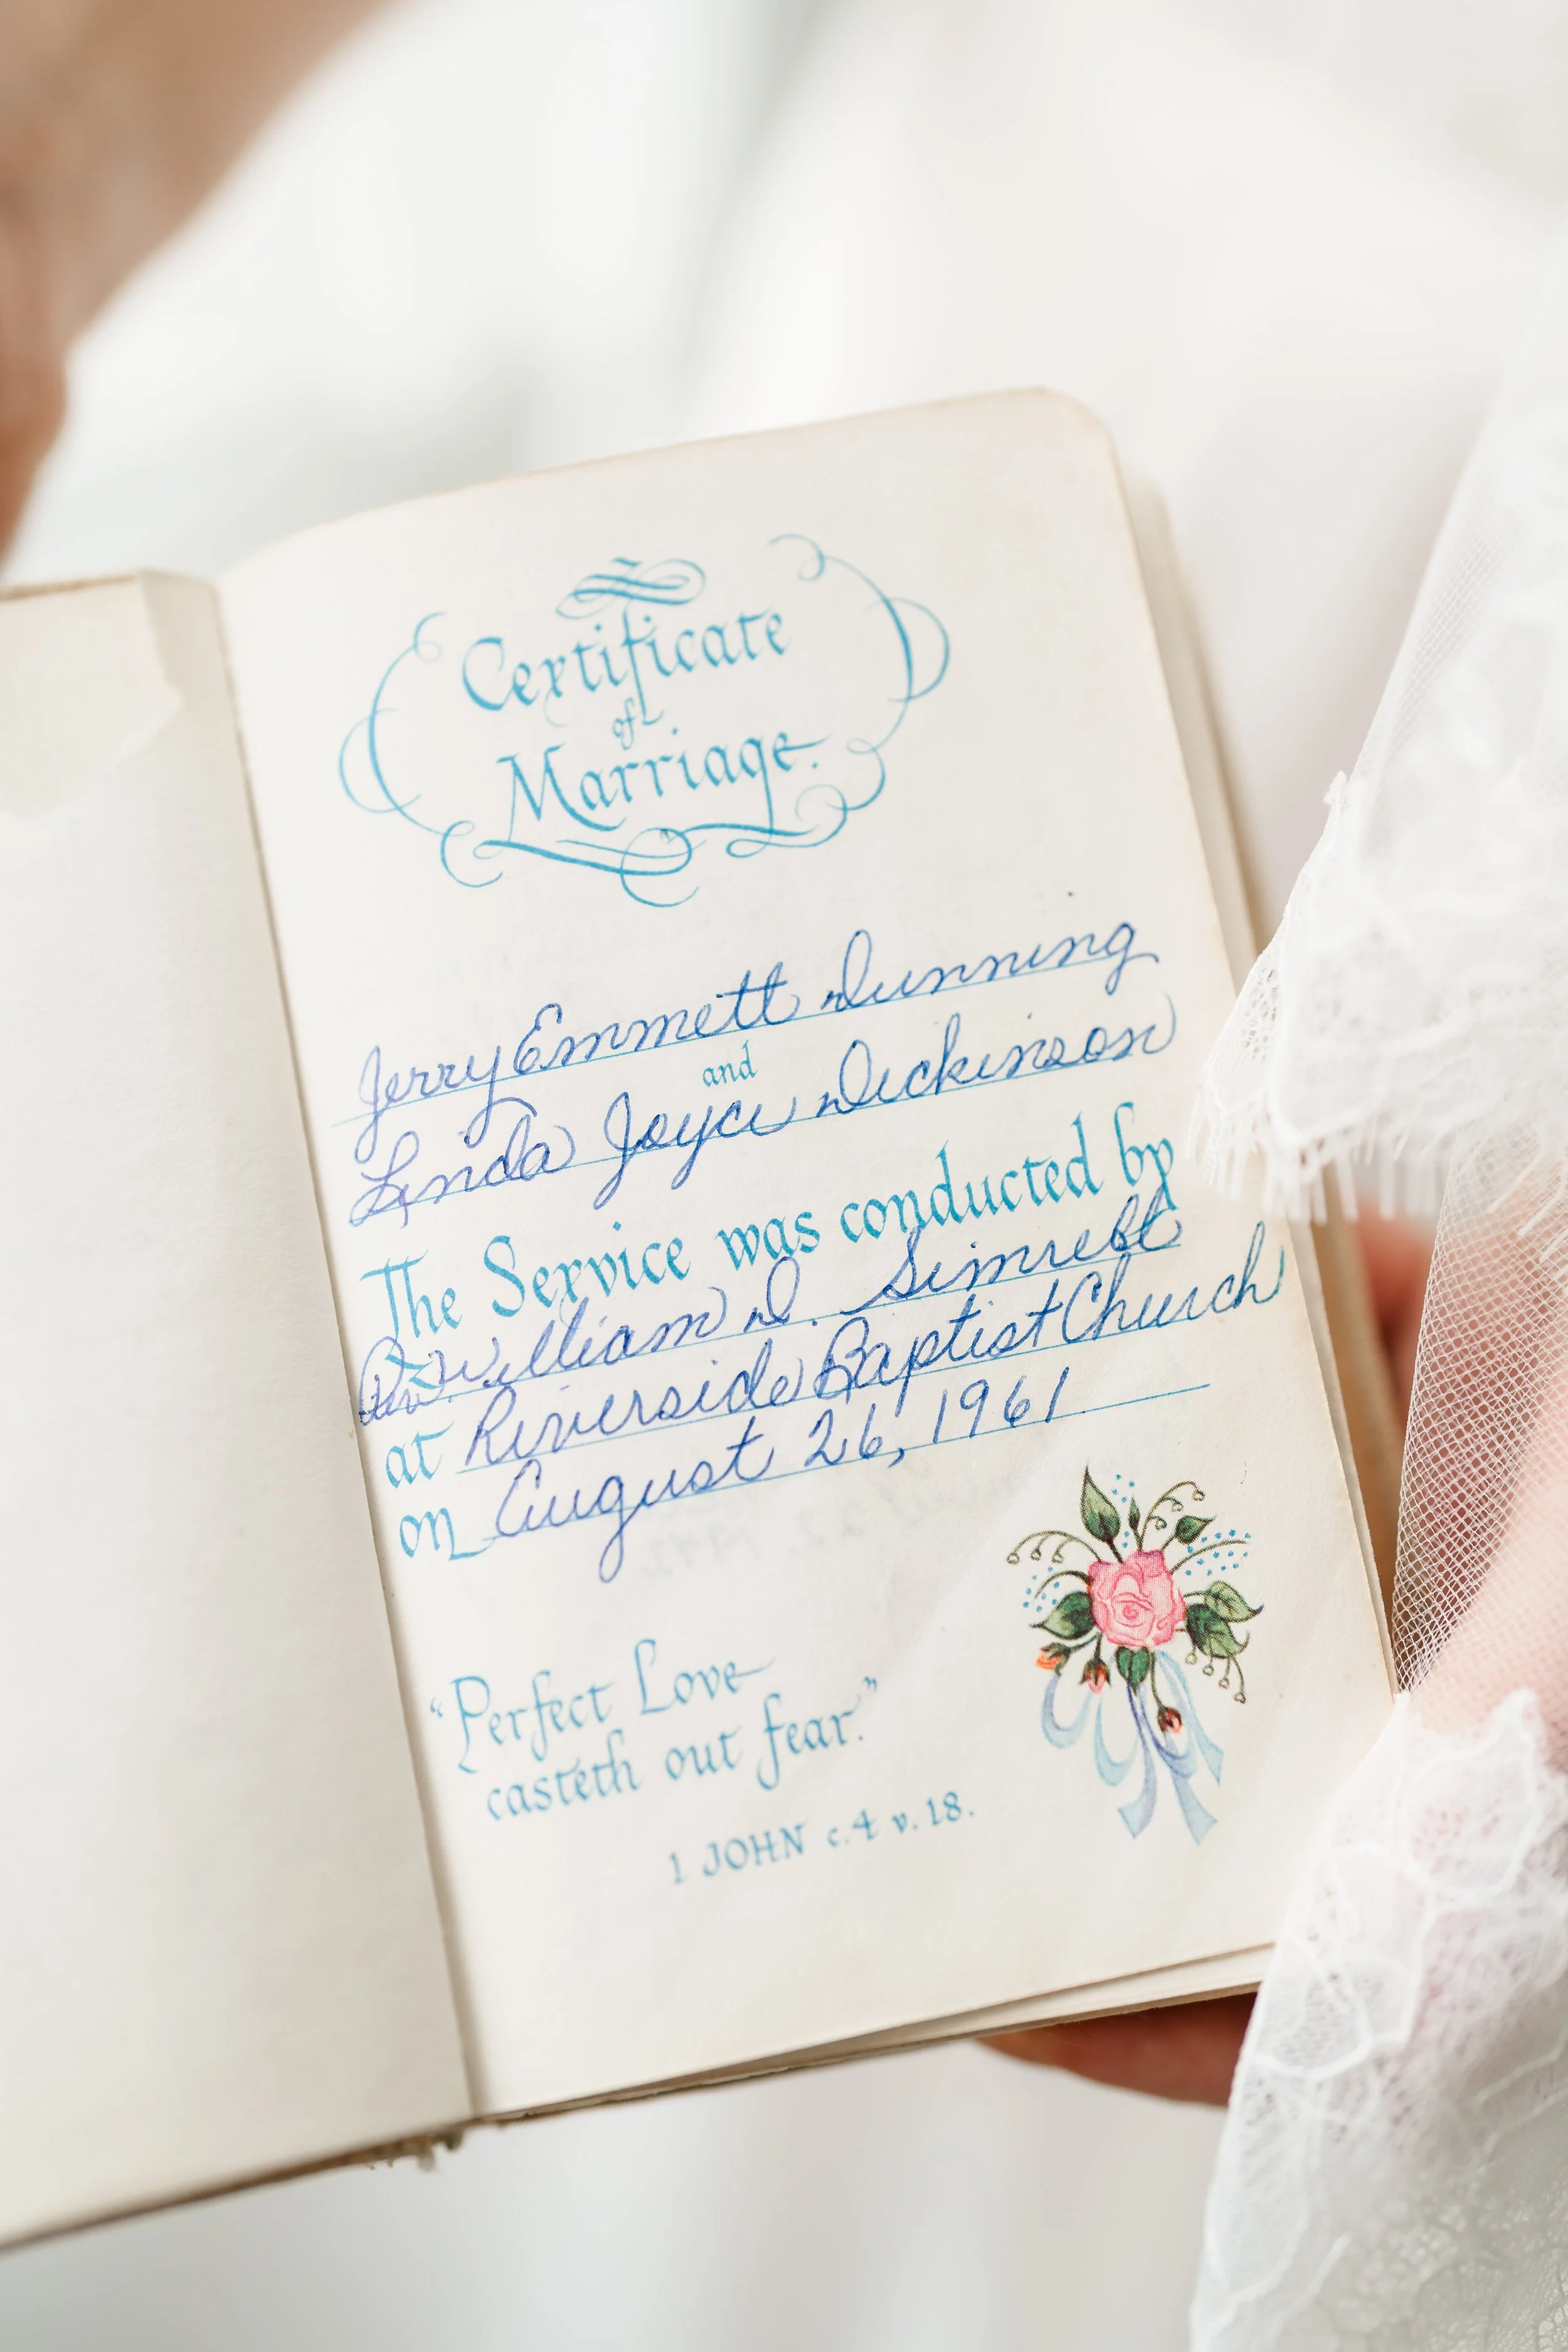 Certificate
of
Marriage.
Jerry Emmett Dunning
and
Linda Joyce Dickinson
The Service was conducted by
Rev. William D.
at Riverside Baptist Church
on August 26, 1961
"Perfect Love
casteth out fear."
1 JOHN c.4 v.18.